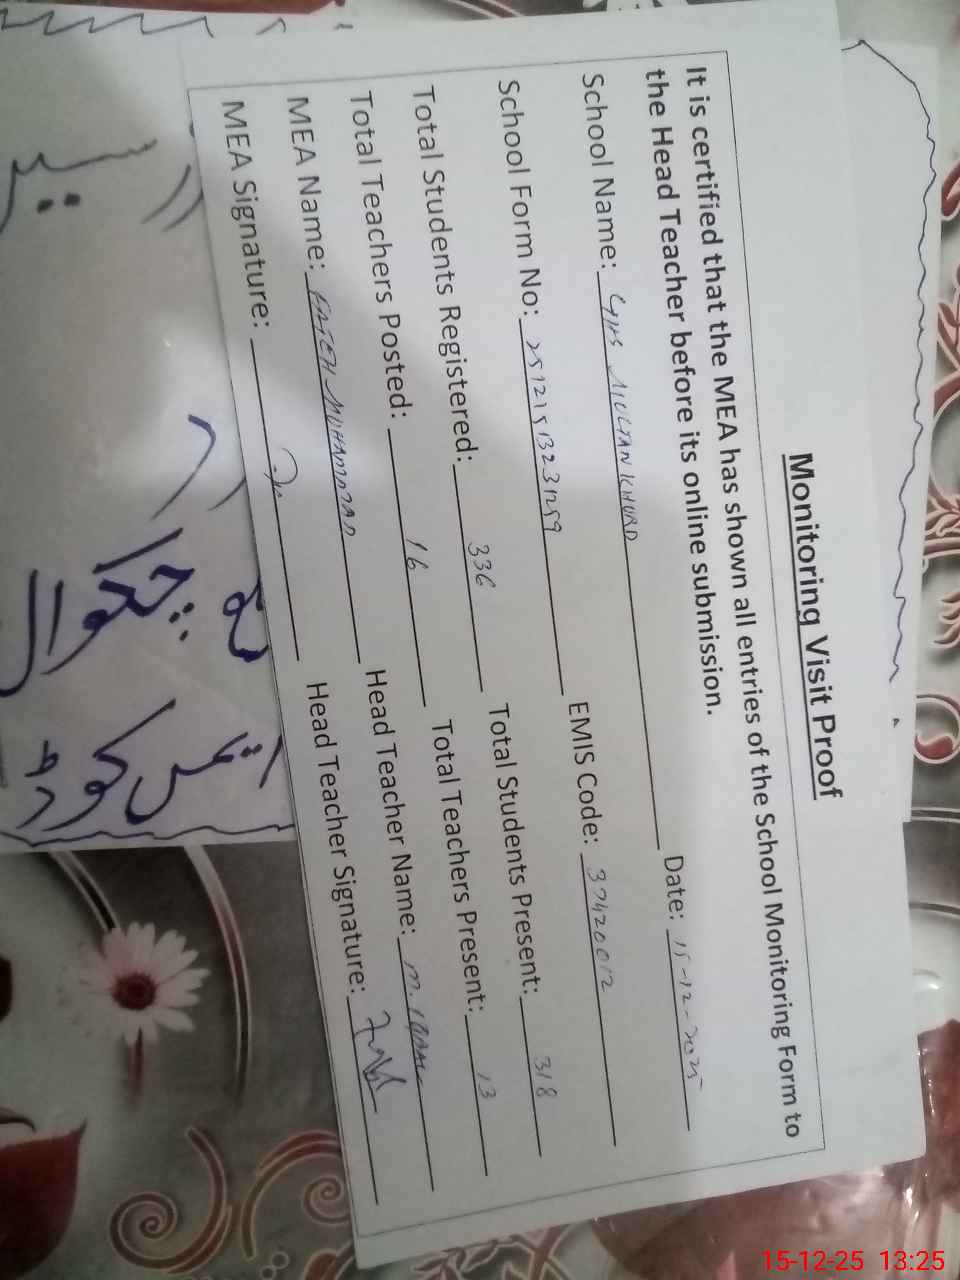 Monitoring Visit Proof
It is certified that the MEA has shown all entries of the School Monitoring Form to
the Head Teacher before its online submission.
School Name: GHS MULTAN KHURD Date: 15-12-2025
School Form No: 25121513231259 EMIS Code: 37420012
Total Students Registered: 336 Total Students Present: 318
Total Teachers Posted: 16 Total Teachers Present: 13
MEA Name: FATEH MUHAMMAD Head Teacher Name: M. IQBAL
MEA Signature: Head Teacher Signature:
15-12-25 13:25